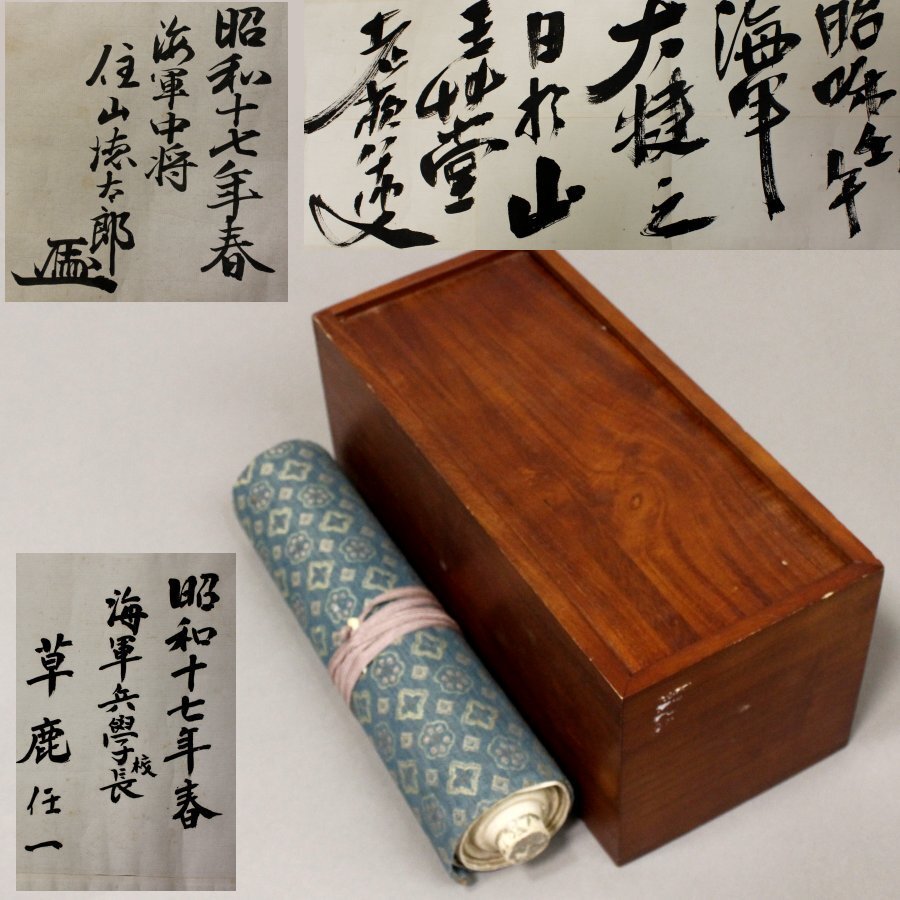 昭和十七年春
海軍中将
住山徳太郎
昭咊壬午
海軍
大捷之
日於山
王艸堂
昭和十七年春
海軍兵學校長
草鹿任一